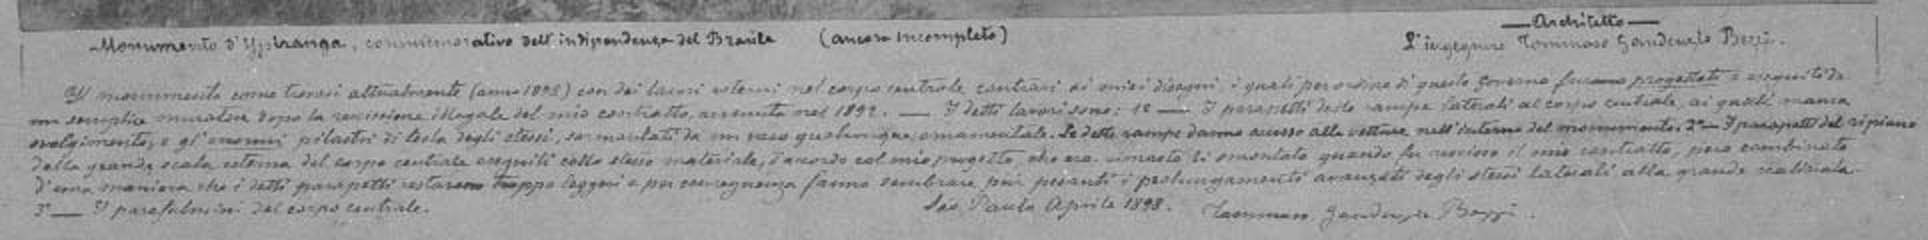 Monumento d'Ypiranga, commemorativo dell'indipendenza del Brasile (ancora incompleto)
Architetto
L'ingegnere Tommaso Gaudenzio Bezzi.
Il monumento come trovasi attualmente (anno 1898) con dei lavori esterni nel corpo centrale contrari ai miei disegni, i quali per ordine di questo Governo furono progettati e eseguiti da
un semplice muratore dopo la rescissione illegale del mio contratto, avvenuta nel 1892. — I detti lavori sono: 1º — I parapetti delle rampe laterali al corpo centrale, ai quali manca
svolgimento, e gl'enormi pilastri di testa degli stessi, sormontati da un vaso qualunque, ornamentale. Le dette rampe danno accesso alle vetture nell'interno del monumento. 2º — I parapetti del ripiano
della grande scala esterna del corpo centrale eseguiti collo stesso materiale, d'accordo col mio progetto, che era rimasto lì smontato quando fu rescisso il mio contratto, però combinato
d'una maniera che i detti parapetti restarono troppo leggeri e per conseguenza fanno sembrare più pesanti i prolungamenti avanzati degli stessi laterali alla grande scalinata.
3º — I parafulmini del corpo centrale. São Paulo Aprile 1898. Tommaso Gaudenzio Bezzi.